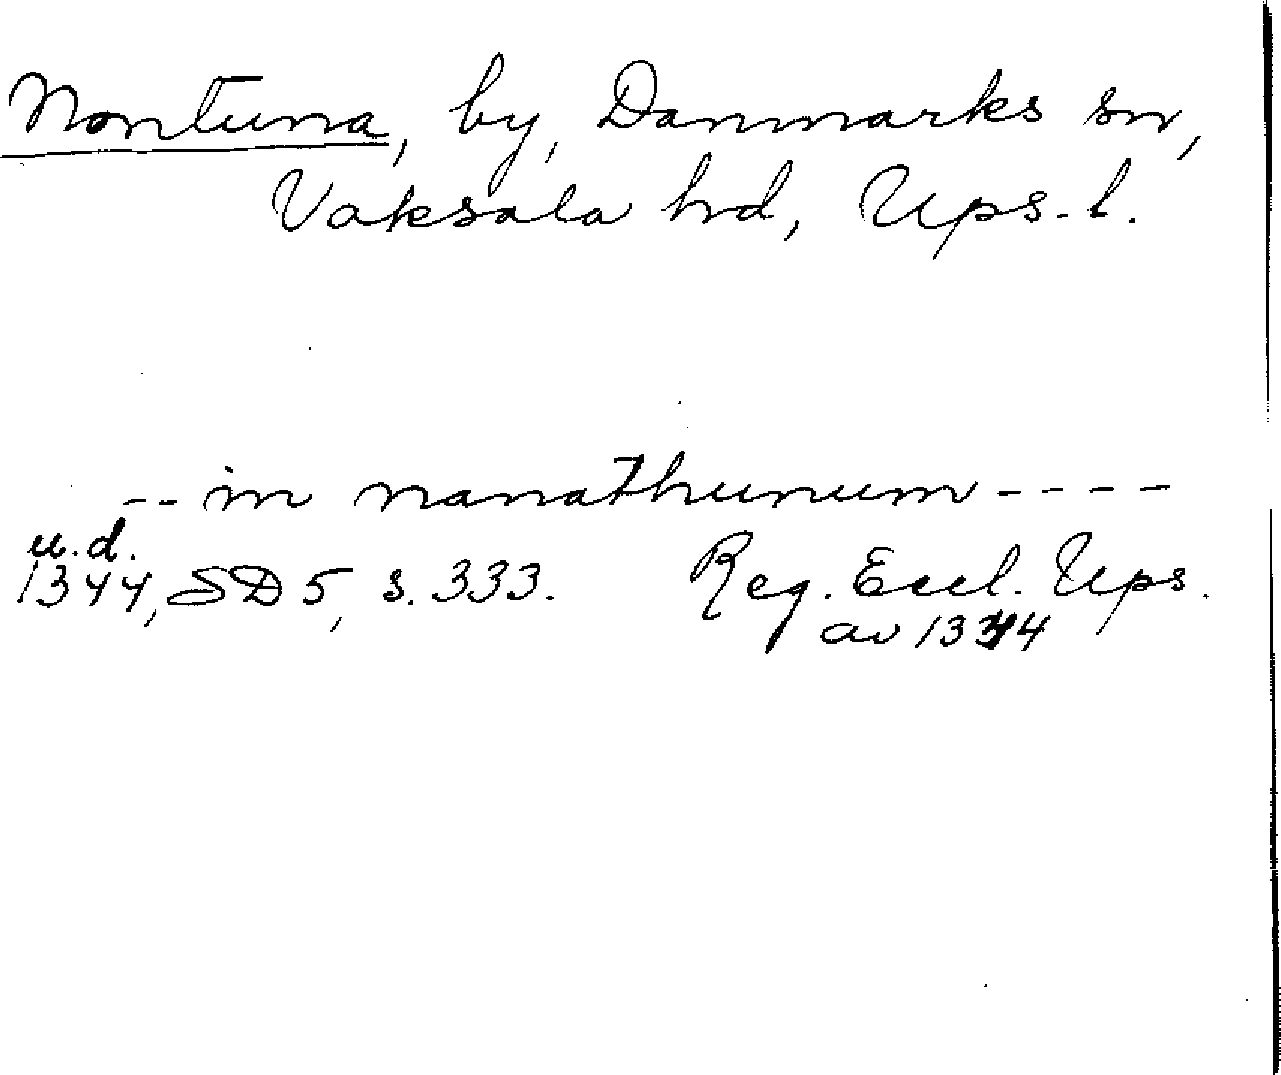 Nontuna, by, Danmarks sn,
Vaksala hd, Ups. l.
-- in nanathunum ----
u.d.
1344, SD 5, s. 333. Reg. Eccl. Ups.
av 1344